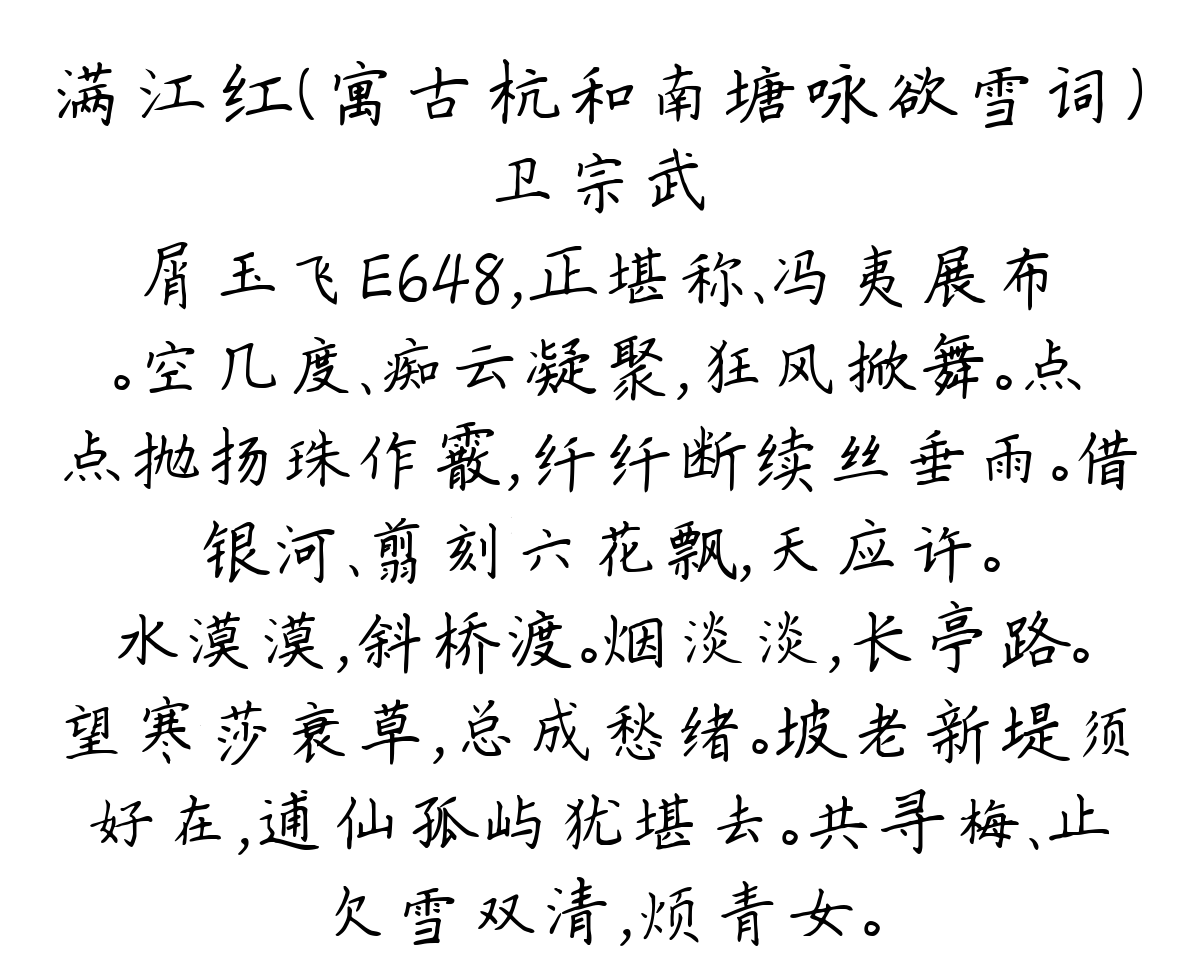 满江红(寓古杭和南塘咏欲雪词)
卫宗武
屑玉飞E648,正堪称、冯夷展布
。空几度、痴云凝聚,狂风掀舞。点
点抛扬珠作霰,纤纤断续丝垂雨。借
银河、翦刻六花飘,天应许。
水漠漠,斜桥渡。烟淡淡,长亭路。
望寒莎衰草,总成愁绪。坡老新堤须
好在,逋仙孤屿犹堪去。共寻梅、止
欠雪双清,烦青女。